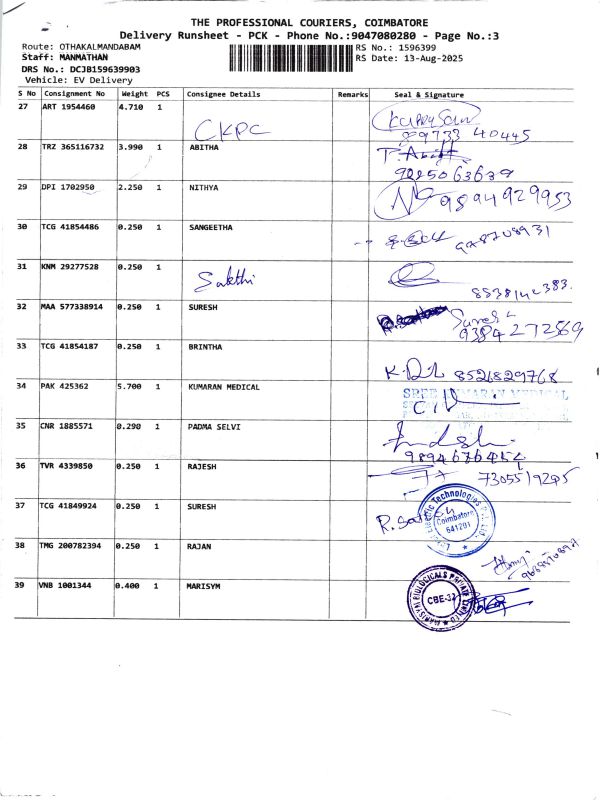 THE PROFESSIONAL COURIERS, COIMBATORE
Delivery Runsheet - PCK - Phone No.:9047080280 - Page No.:3
Route: OTHAKALMANDABAM
RS No.: 1596399
Staff: MANMATHAN
RS Date: 13-Aug-2025
DRS No.: DCJB159639903
Vehicle: EV Delivery
S No Consignment No Weight PCS Consignee Details Remarks Seal & Signature
27 ART 1954460 4.710 1 CKPC
89733 40445
28 TRZ 365116732 3.990 1 ABITHA
9025063639
29 DPI 1702950 2.250 1 NITHYA 9894929953
30 TCG 41854486 0.250 1 SANGEETHA
31 KNM 29277528 0.250 1 Sakthi
32 MAA 577338914 0.250 1 SURESH Suresh
9384272569
33 TCG 41854187 0.250 1 BRINTHA
8526829768
34 PAK 425362 5.700 1 KUMARAN MEDICAL
35 CNR 1885571 0.290 1 PADMA SELVI
36 TVR 4339850 0.250 1 RAJESH
37 TCG 41849924 0.250 1 SURESH
Electric Technologies Pvt. Ltd.
Coimbatore
641201
38 TMG 200782394 0.250 1 RAJAN
39 VNB 1001344 0.400 1 MARISYM
MARISYM BIOLOGICALS PRIVATE LIMITED
CBE-32